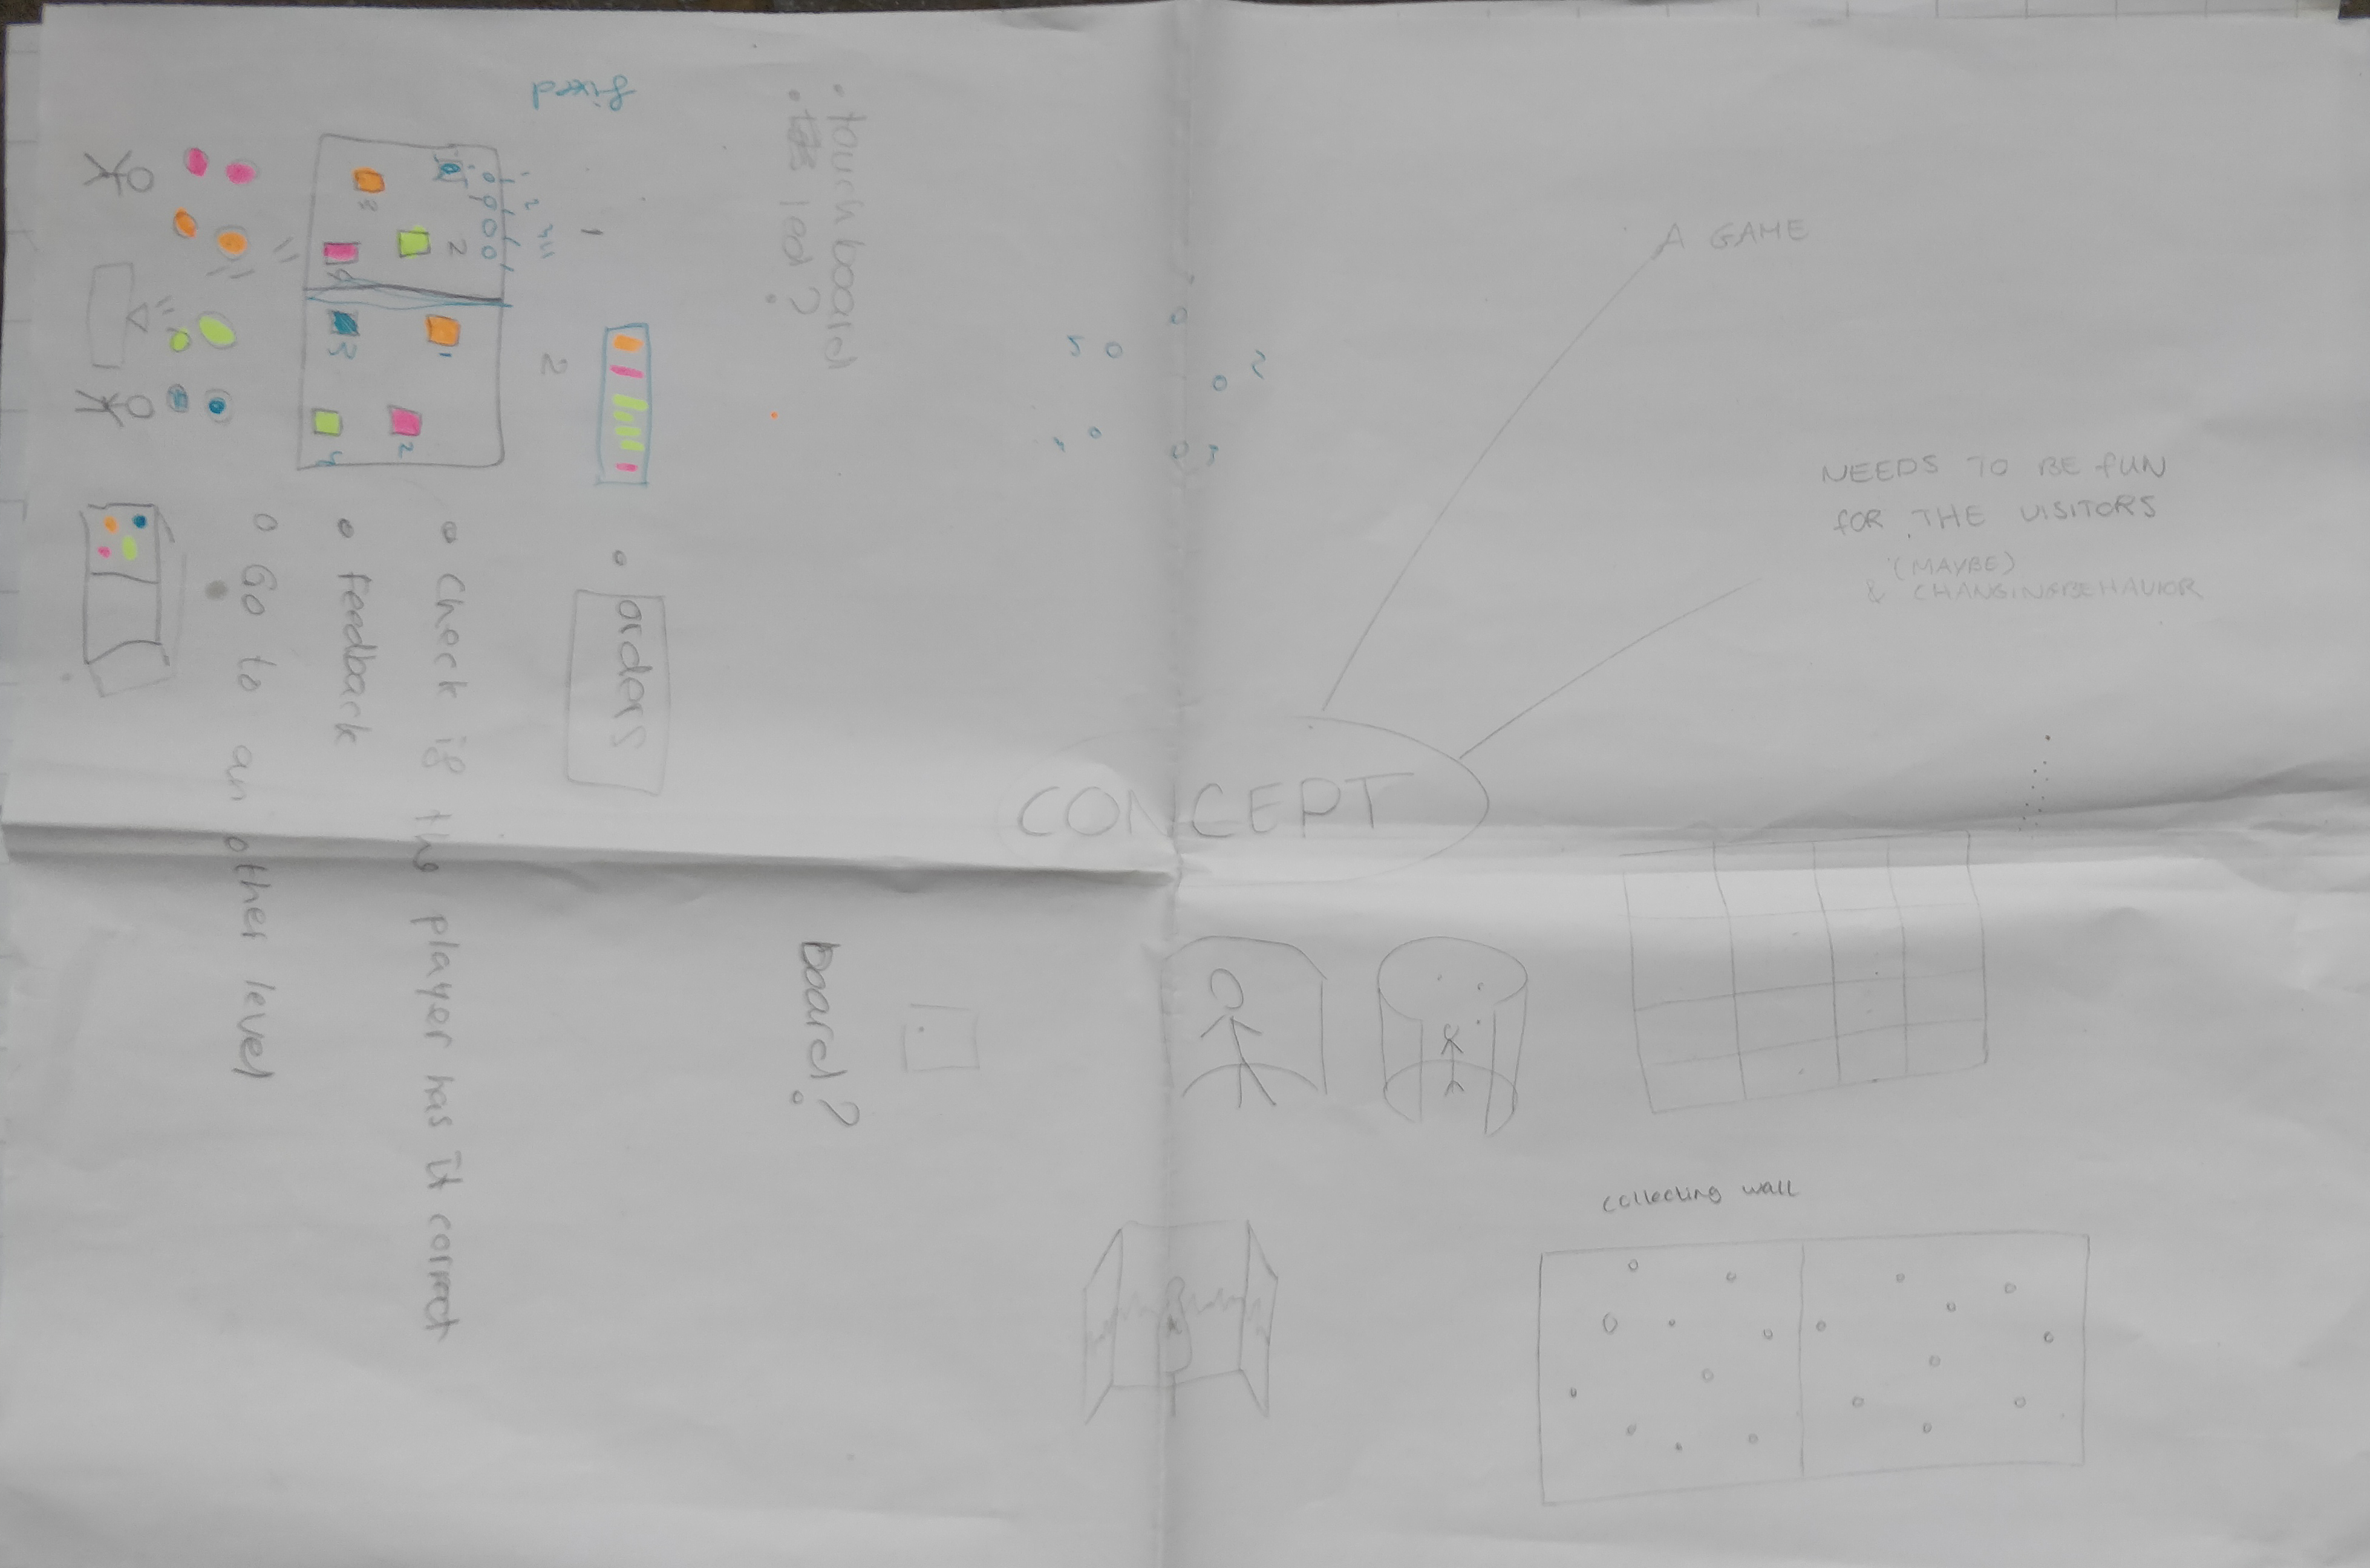 A GAME
NEEDS TO BE fUN
fOR THE VISITORS
(MAYBE)
& CHANGING BEHAVIOR
CONCEPT
collecting wall
• touch board
led ?
fixed
1
2
1
2
3
4
2
1
2
3
4
• orders
• Check if the player has it correct
• feedback
• Go to an other level
board?
5
2